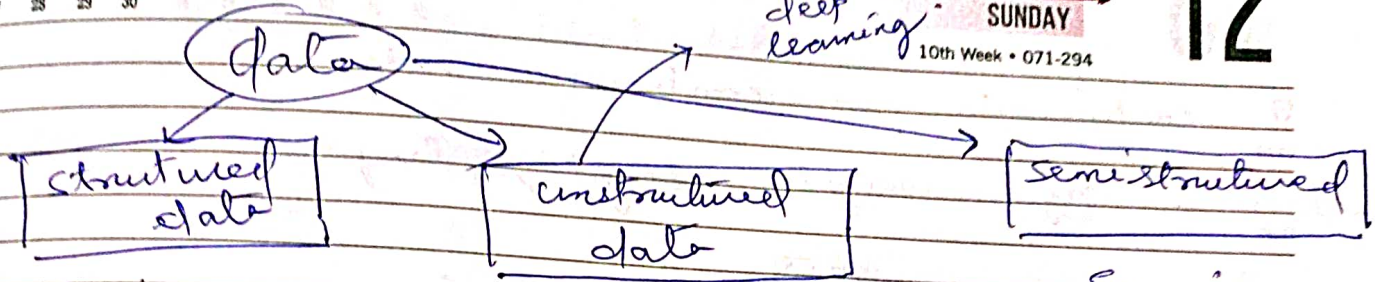 28 29 30
deep
learning
SUNDAY
12
10th Week • 071-294
data
structured
data
unstructured
data
semistructured